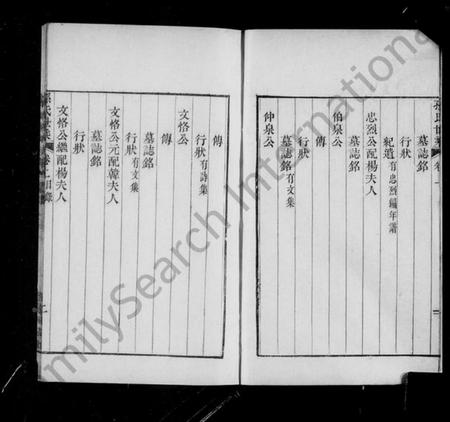 孫氏世乘 卷二
墓誌銘
行狀
紀遺 有忠烈編年譜
忠烈公配楊夫人
墓誌銘
伯泉公
行狀
傳
墓誌銘 有文集
仲泉公
傳
行狀 有詩集
墓誌銘
文恪公
傳
墓誌銘
行狀 有文集
文恪公元配韓夫人
墓誌銘
行狀
文恪公繼配楊夫人
孫氏世乘 卷二目錄 二
milySearch International